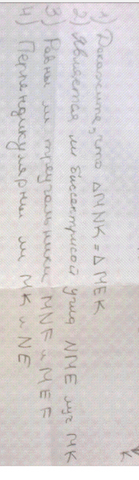 1) Докажите, что ΔMNK = ΔMEK
2) Является ли биссектрисой угла NME луч MK
3) Равны ли треугольники MNF и MEF
4) Перпендикулярны ли MK и NE
K